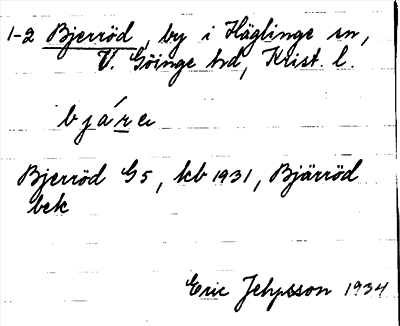 1-2 Bjerröd, by i Häglinge sn,
V. Göinge hd, Krist. l.
Bjerröd G5, kb 1931, Bjärröd
bek
Eric 1934